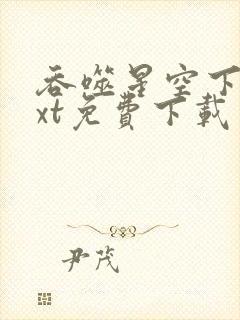 吞噬星空下
xt免費下載
尹茂